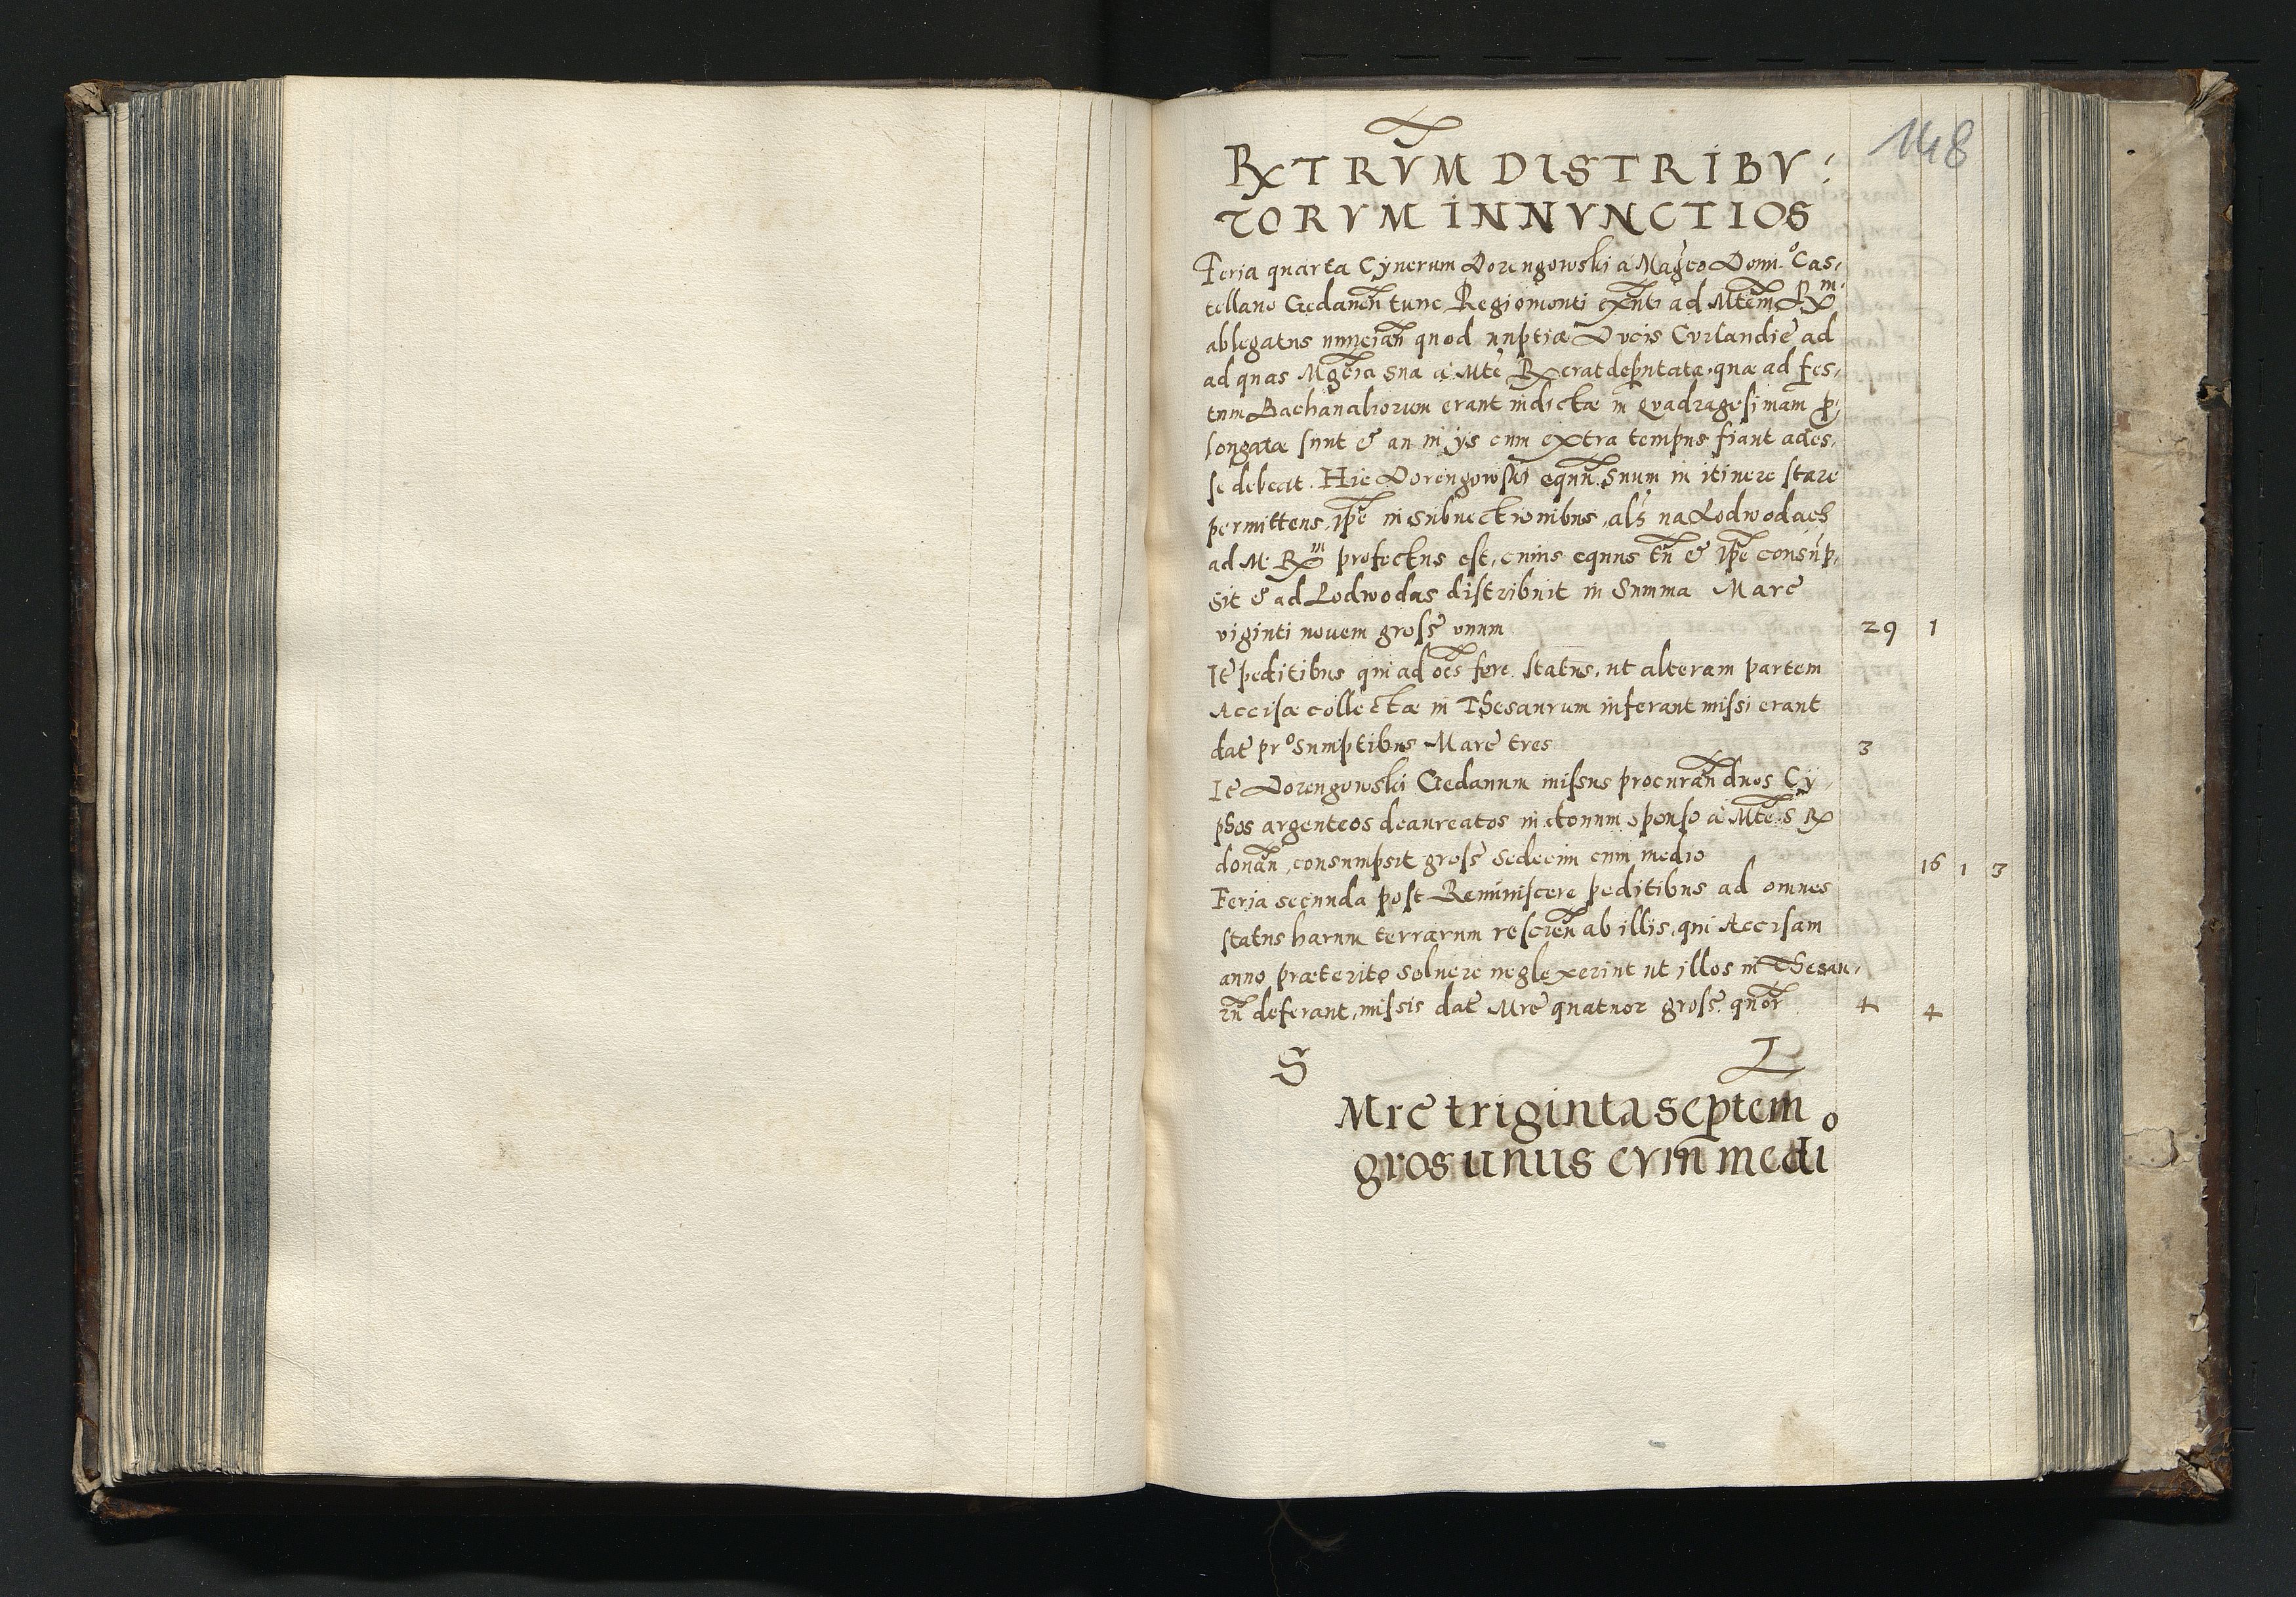 148
RXTRVM DISTRIBV:
TORVM IN NVNCTIOS
Feria quarta Cynerum Dorengowski a Mag̃co Domº Cas,
tellano Gedaneñ tunc Regiomonti exñti ad Mtẽm Rxᵐ
ablegatus nunciañ quod nuptiæ Ducis Curlandiẽ ad
ad quas Mg̃cia sua a Mtẽ Rx erat deputata, quæ ad fes,
tum Bachanaliorum erant indictæ in Qvadragesimam ꝓ,
longatæ sunt & an in ijs cum extra tempus fiant ades,
se debeat. Hic Dorengowski equũ suum in itinere stare
permittens, ip̃e in subuectionibus, als̃ na Lodwodach
ad M. Rxᵐ profectus est, cuius equus tñ & ip̃e consũp,
sit & ad Lodwodas distribuit in Summa Marc̃
viginti nouem gross̃ vnum 29 1
Itẽ peditibus qui ad oẽs fere status, ut alteram partem
Accisæ collectæ in Thesaurum inferant missi erant
dat̃ prº sumptibus Marc̃ tres 3
Itẽ Dorengowski Gedanum missus procurañ duos Cy,
phos argenteos deaureatos in donum sponso a Mtẽ S Rx
donañ, consumpsit gross̃ sedecim cum medio 16 1 3
Feria secunda post Reminiscere peditibus ad omnes
status harum terrarum rescieñ ab illis, qui Accisam
anno præterito soluere neglexerint ut illos in Thesau,
rũ deferant, missis dat̃ Mrc̃ quatuor gross̃ quor̃ 4 4
S L
Mrc̃ triginta septem
gros unus cvm̃ medio